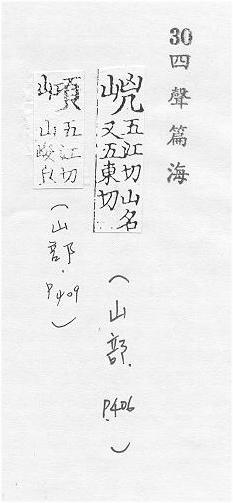 30四聲篇海
五江切山名
又五東切
(山部.P.406)
五江切
山峻皃
(山部.P.409)